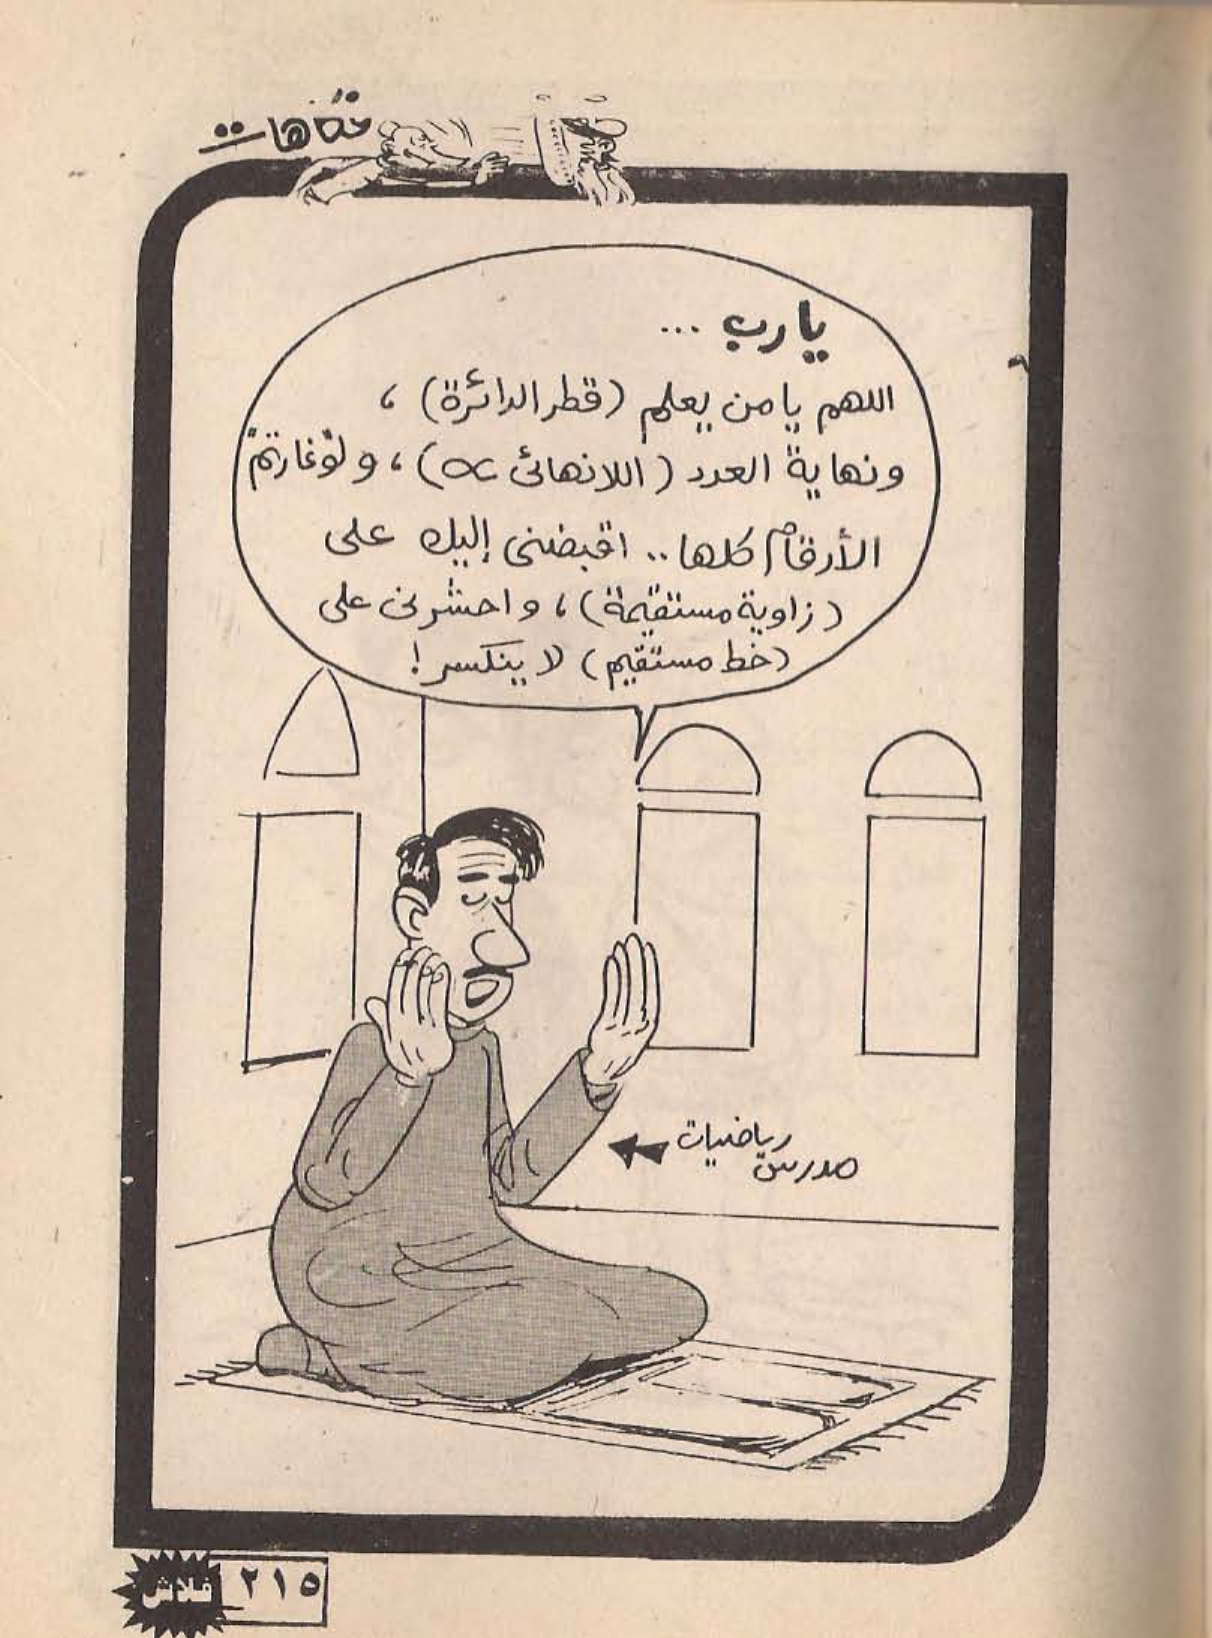 فكاهات
يارب ...
اللهم يا من يعلم (قطر الدائرة) ،
ونهاية العدد (اللانهائى ∝) ، ولوغارتم
الأرقام كلها .. اقبضنى إليك على
(زاوية مستقيمة) ، واحشرنى على
(خط مستقيم) لا ينكسر !
مدرس رياضيات
فلاش ٢١٥